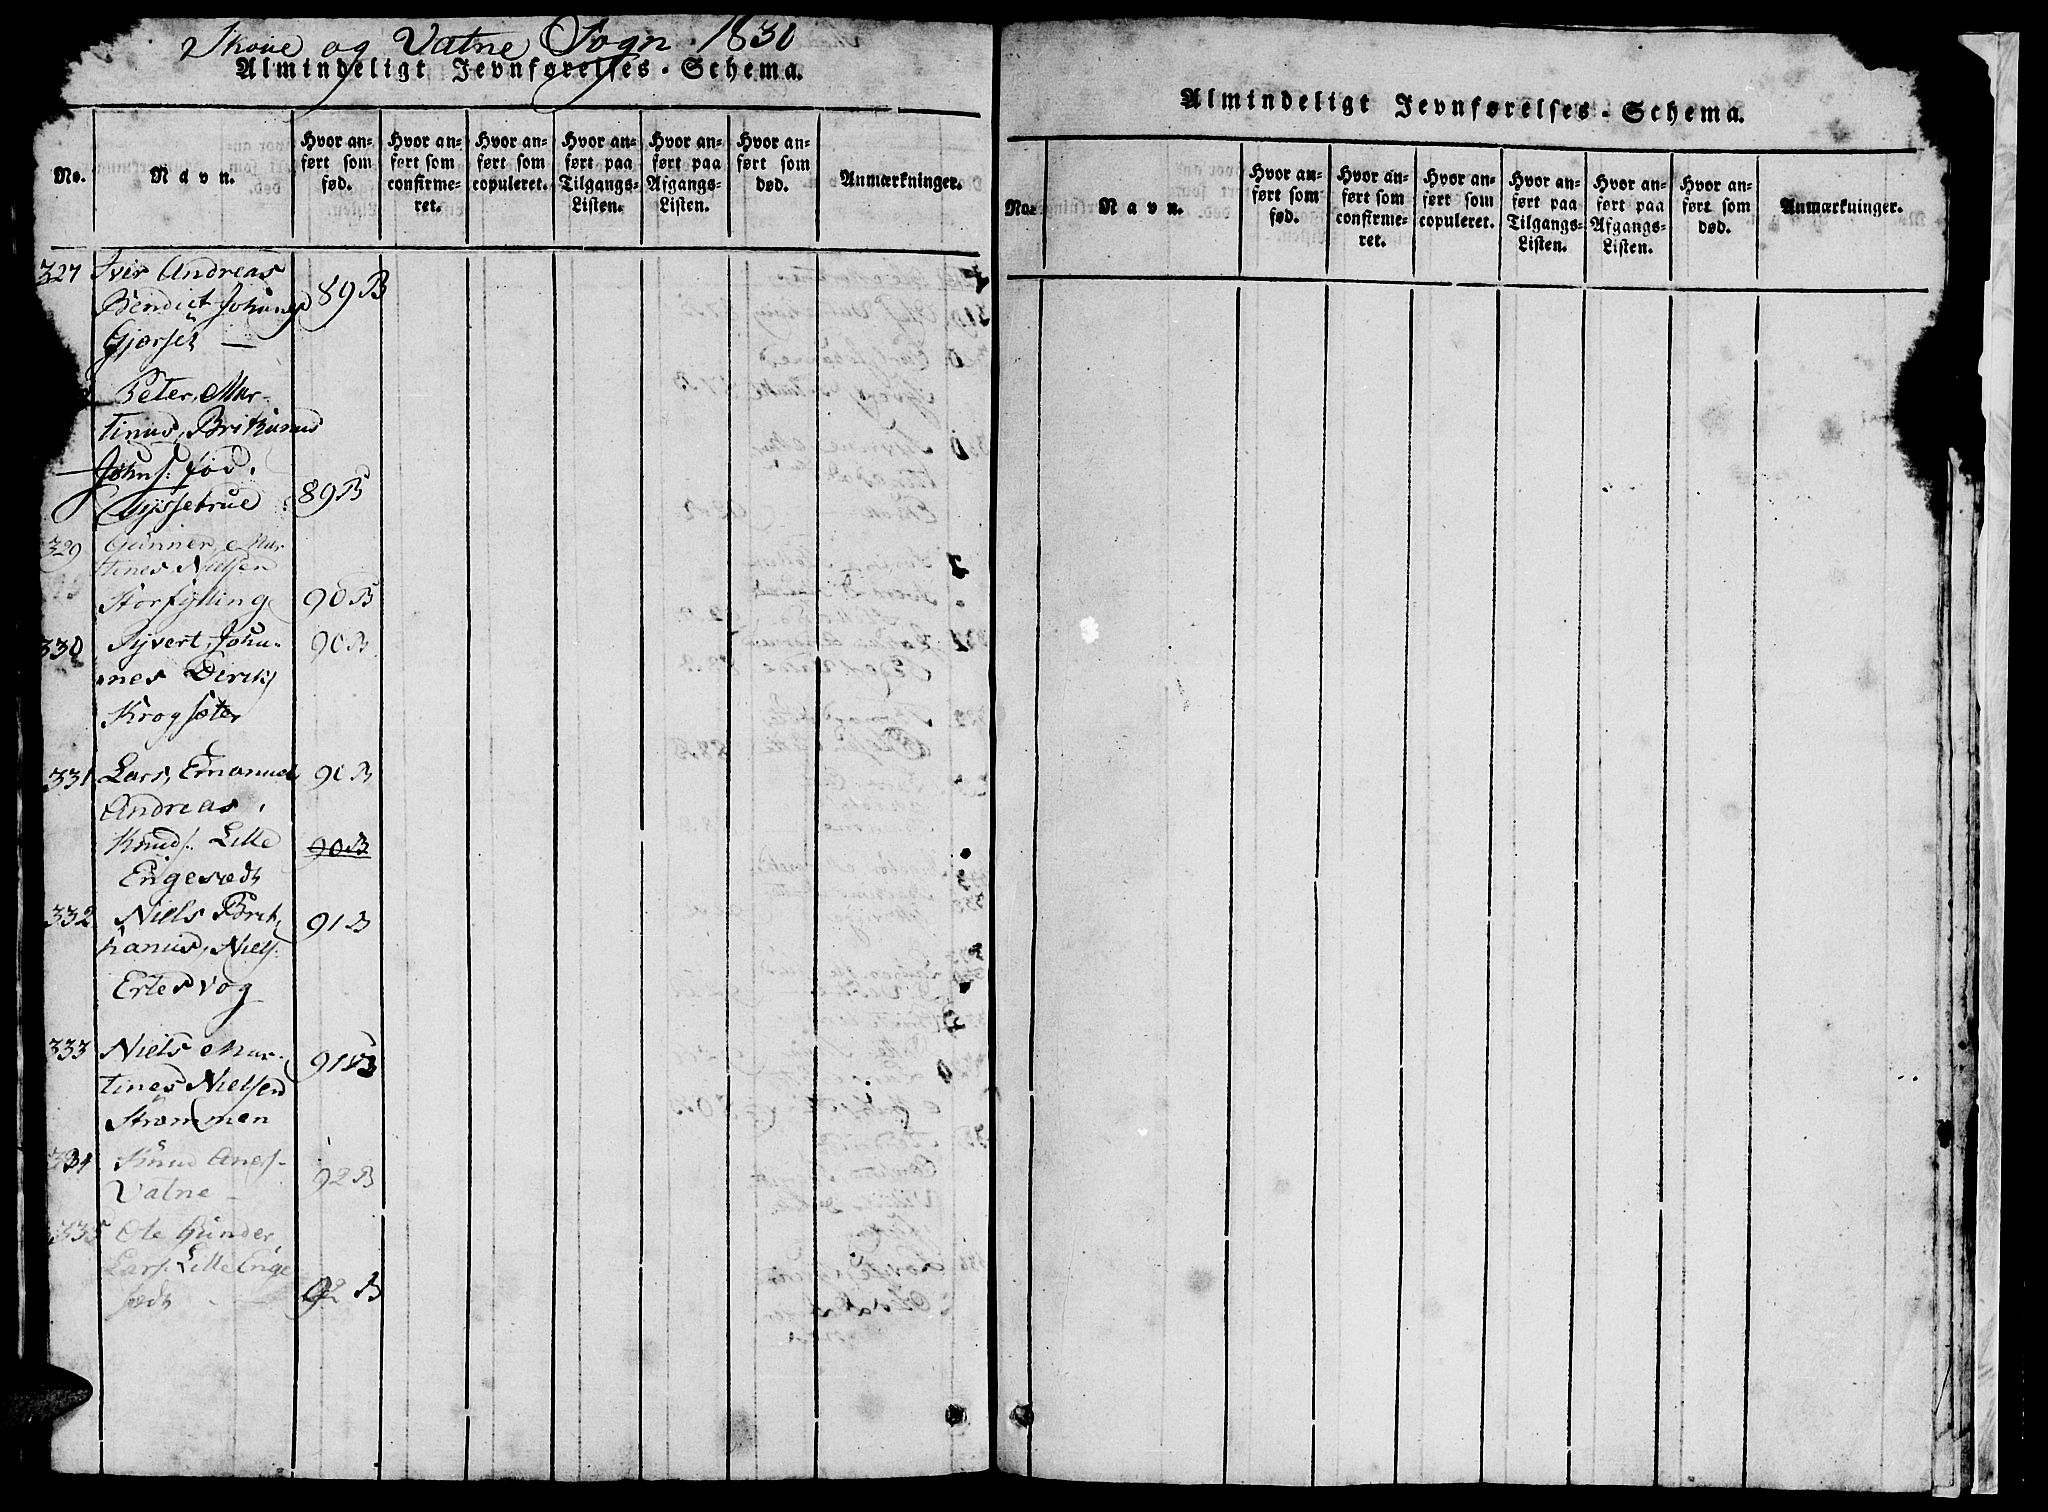 Skoue og Vatne Sogn 1830
Almindeligt Jevnførelses-Schema.
No.
Navn.
Hvor anført som fød.
Hvor anført som confirmeret.
Hvor anført som copuleret.
Hvor anført paa Tilgangs-Listen.
Hvor anført paa Afgangs-Listen.
Hvor anført som død.
Anmærkninger.
327 Iver Andreas
Bendict Johans 89 B
Gjørset —
Peter, Mar-
tinus, Brithanus
Johns. fød.
89 B
329 Gunner, Mar
tines Nielsen
Storfylling 90 B
330 Syvert, Joha- 90 B
nes Diriks
Krogsæter
331 Lars, Emanuel 90 B
Andreas,
Knuds. Lille 90 B
Engesædt
332 Niels Brit 91 B
hanus, Niels.
Ertesvog
333 Niels Mar- 91 B
tines Nielsen
Strømmen
334 Knud Aness-
Vatne — 92 B
335 Ole Gunder
Lars. Lille Enge
sædt — 92 B
Almindeligt Jevnførelses-Schema.
No.
Navn.
Hvor anført som fød.
Hvor anført som confirmeret.
Hvor anført som copuleret.
Hvor anført paa Tilgangs-Listen.
Hvor anført paa Afgangs-Listen.
Hvor anført som død.
Anmærkninger.